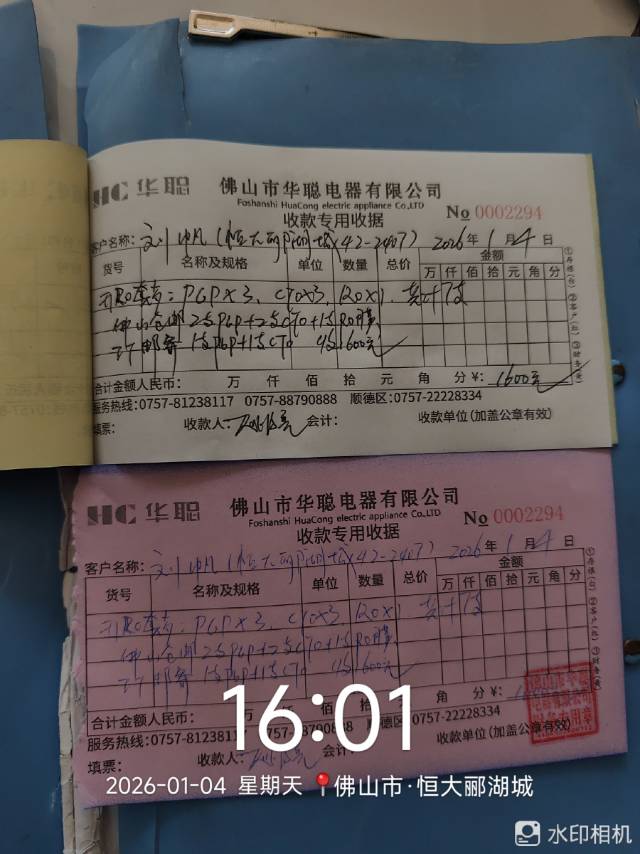 HC 华聪
佛山市华聪电器有限公司
Foshanshi HuaCong electric appliance Co.,LTD
收款专用收据
No 0002294
客户名称: 刘帆(恒大郦湖城42-2407) 2026年1月4日
货号 名称及规格 单位 数量 总价 金额
万 仟 佰 拾 元 角 分
RO套餐: PGP×3、CTO×3、RO×1 共计7支
2支PGP+2支CTO+1支RO膜
邮寄 1支PGP+1支CTO 1600元
合计金额人民币: 万 仟 佰 拾 元 角 分 ¥: 1600元
服务热线:0757-81238117 0757-88790888 顺德区:0757-22228334
填票: 收款人: 会计: 收款单位(加盖公章有效)
①存根(白) ②客户(红) ③财务(黄)
HC 华聪
佛山市华聪电器有限公司
Foshanshi HuaCong electric appliance Co.,LTD
收款专用收据
No 0002294
客户名称: 刘帆(恒大郦湖城42-2407) 2026年1月4日
货号 名称及规格 单位 数量 总价 金额
万 仟 佰 拾 元 角 分
RO套餐: PGP×3、CTO×3、RO×1 共计7支
2支PGP+2支CTO+1支RO膜
邮寄 1支PGP+1支CTO 1600元
合计金额人民币: 元 角 分 ¥:
服务热线:0757-81238117 88790888 顺德区:0757-22228334
填票: 收款人: 会计: 收款单位(加盖公章有效)
16:01
2026-01-04 星期天 佛山市·恒大郦湖城
水印相机